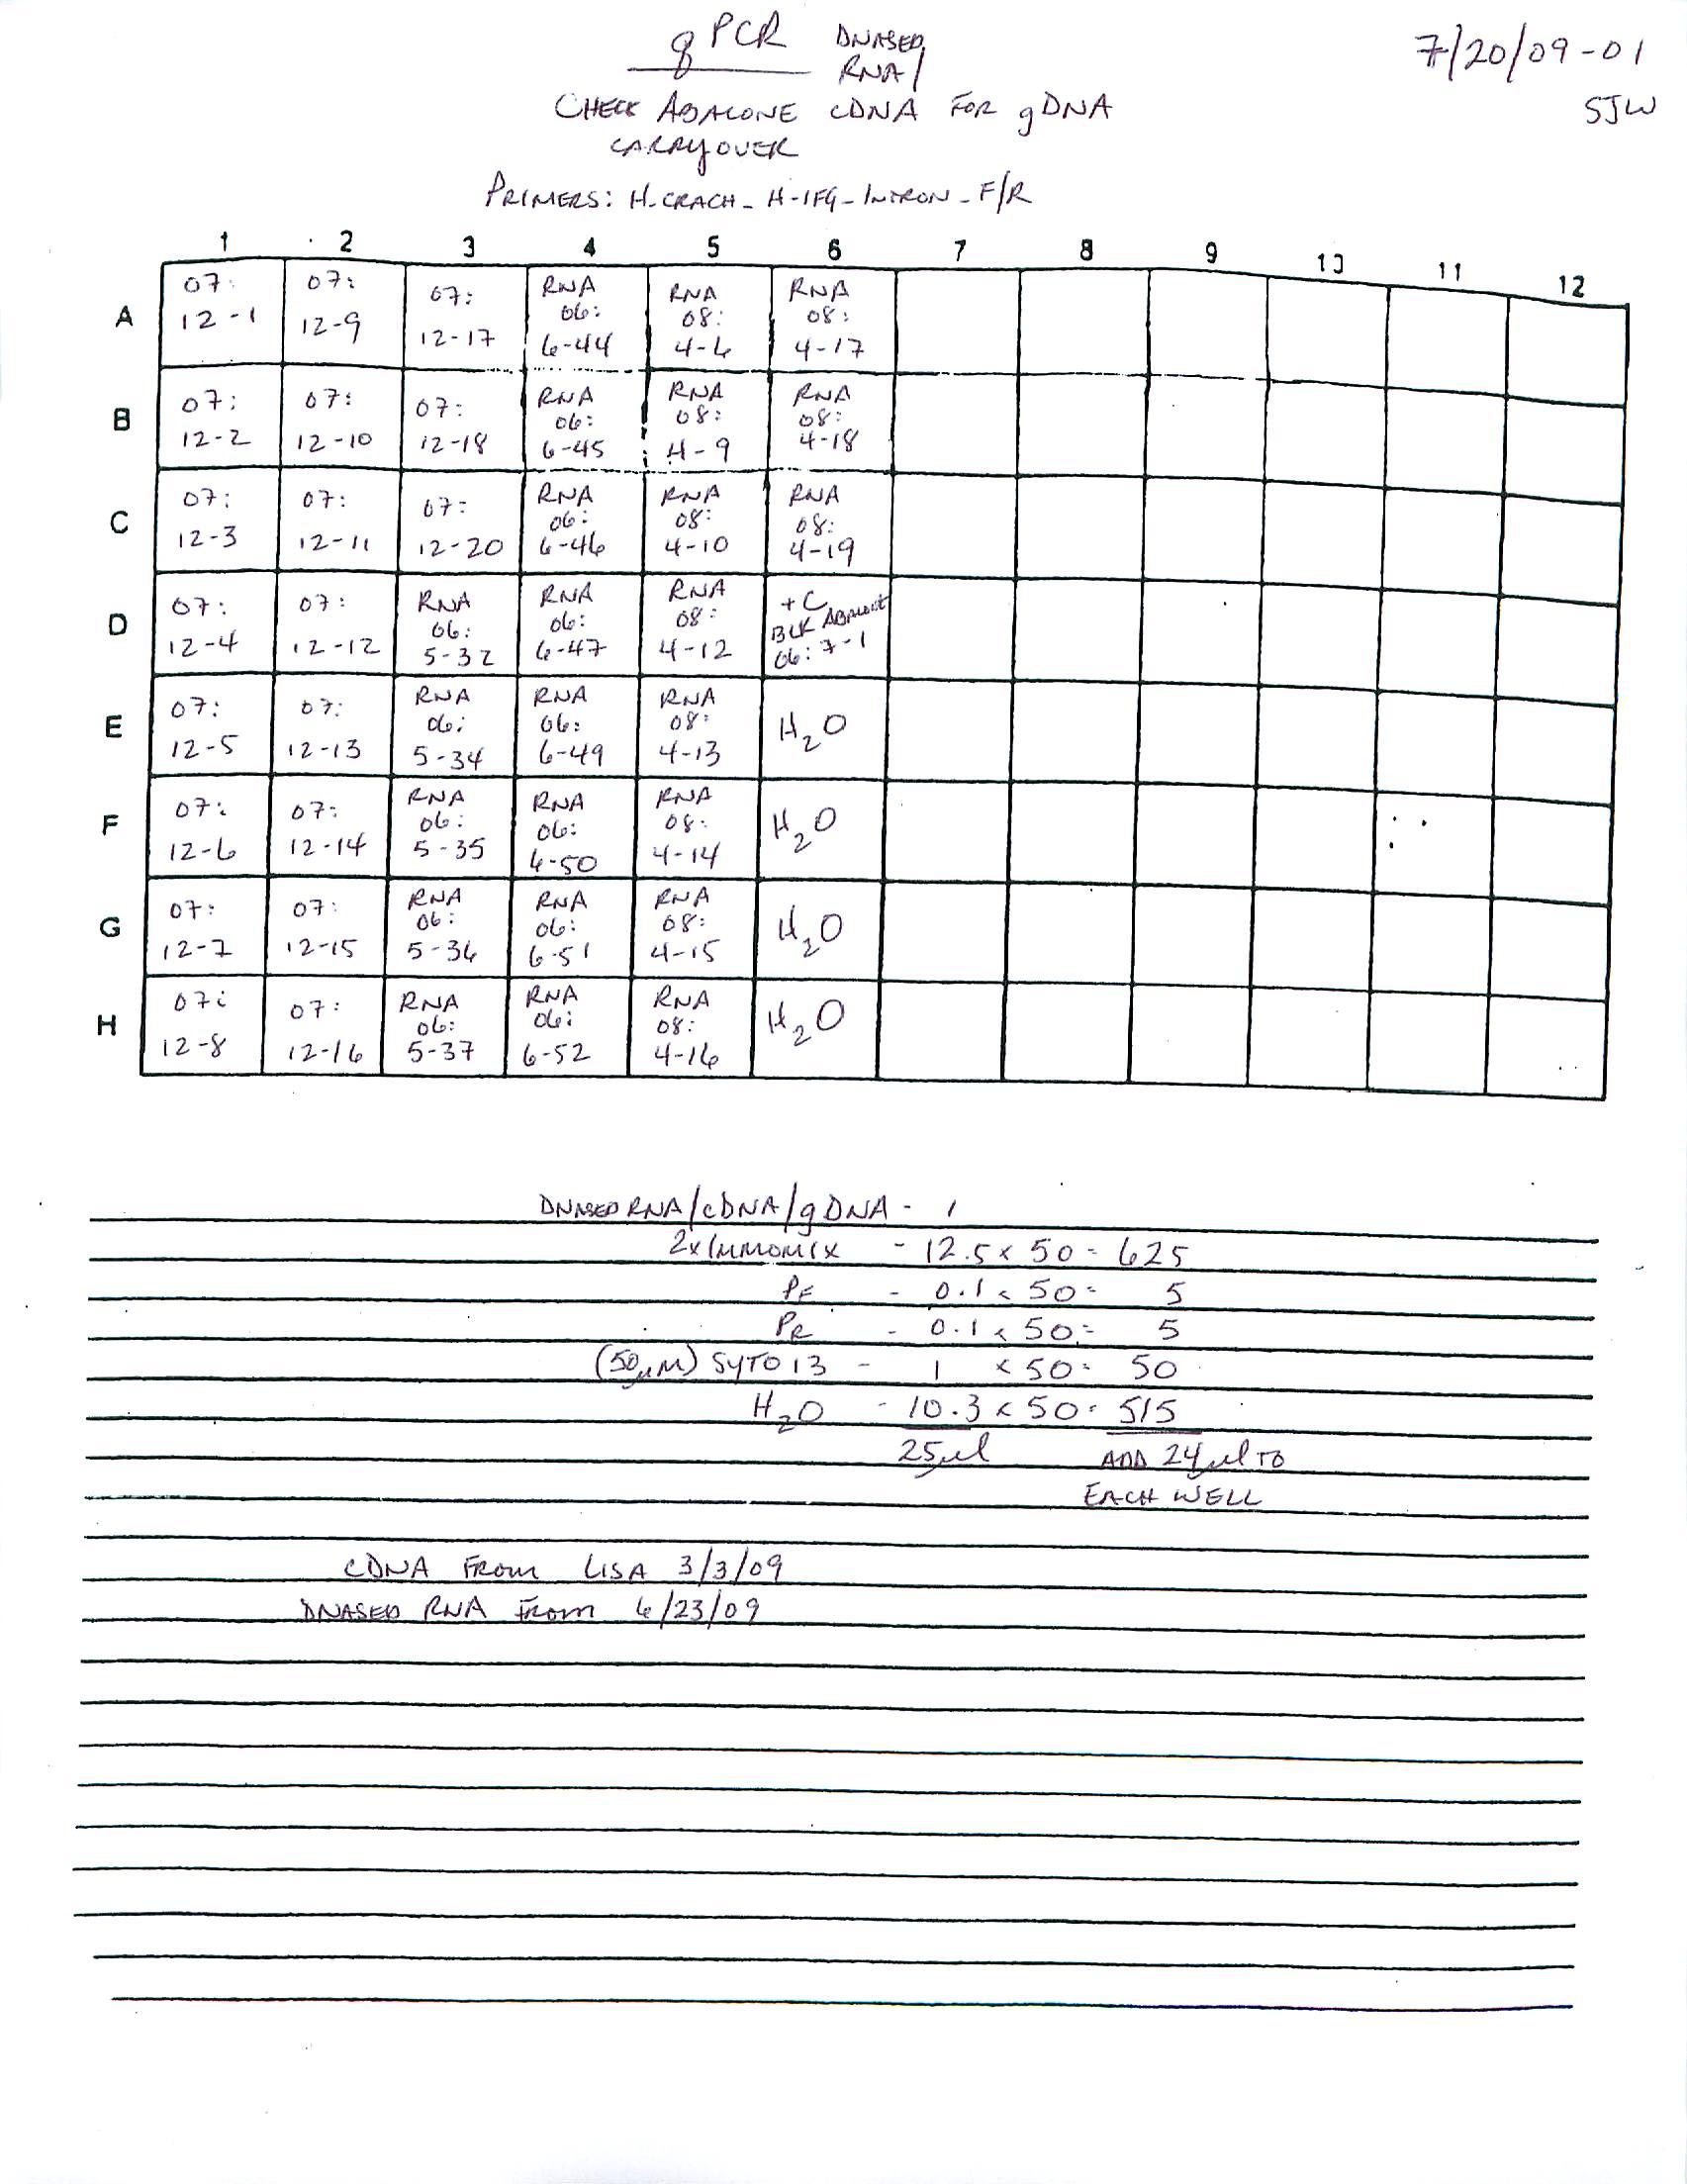 qPCR DNASED
RNA/
7/20/09-01
SJW
CHECK ABALONE cDNA FOR gDNA
CARRYOVER
PRIMERS: H-CRACH_H-IFG_INTRON_F/R
1 2 3 4 5 6 7 8 9 10 11 12
A 07: 12-1 07: 12-9 07: 12-17 RNA 06: 6-44 RNA 08: 4-6 RNA 08: 4-17
B 07: 12-2 07: 12-10 07: 12-18 RNA 06: 6-45 RNA 08: 4-9 RNA 08: 4-18
C 07: 12-3 07: 12-11 07: 12-20 RNA 06: 6-46 RNA 08: 4-10 RNA 08: 4-19
D 07: 12-4 07: 12-12 RNA 06: 5-32 RNA 06: 6-47 RNA 08: 4-12 +C BLK ABALONE 06: 7-1
E 07: 12-5 07: 12-13 RNA 06: 5-34 RNA 06: 6-49 RNA 08: 4-13 H2O
F 07: 12-6 07: 12-14 RNA 06: 5-35 RNA 06: 6-50 RNA 08: 4-14 H2O
G 07: 12-7 07: 12-15 RNA 06: 5-36 RNA 06: 6-51 RNA 08: 4-15 H2O
H 07: 12-8 07: 12-16 RNA 06: 5-37 RNA 06: 6-52 RNA 08: 4-16 H2O
DNASED RNA/cDNA/gDNA - 1
2x IMMOMIX - 12.5 x 50 = 625
PF - 0.1 x 50 = 5
PR - 0.1 x 50 = 5
(50µM) SYTO 13 - 1 x 50 = 50
H2O - 10.3 x 50 = 515
25µl ADD 24µl TO
EACH WELL
cDNA FROM LISA 3/3/09
DNASED RNA FROM 6/23/09